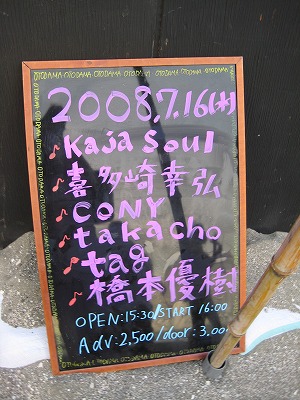 OTODAMA·OTODAMA·OTODAMA·OTODAMA·OTODAMA
2008,7.16(水)
♪Kaja Soul
♪喜多崎幸弘
♪CONY
♪takacho
♪tag
♪橋本優樹
OPEN:15:30/START 16:00
Adv:2,500/door:3,00